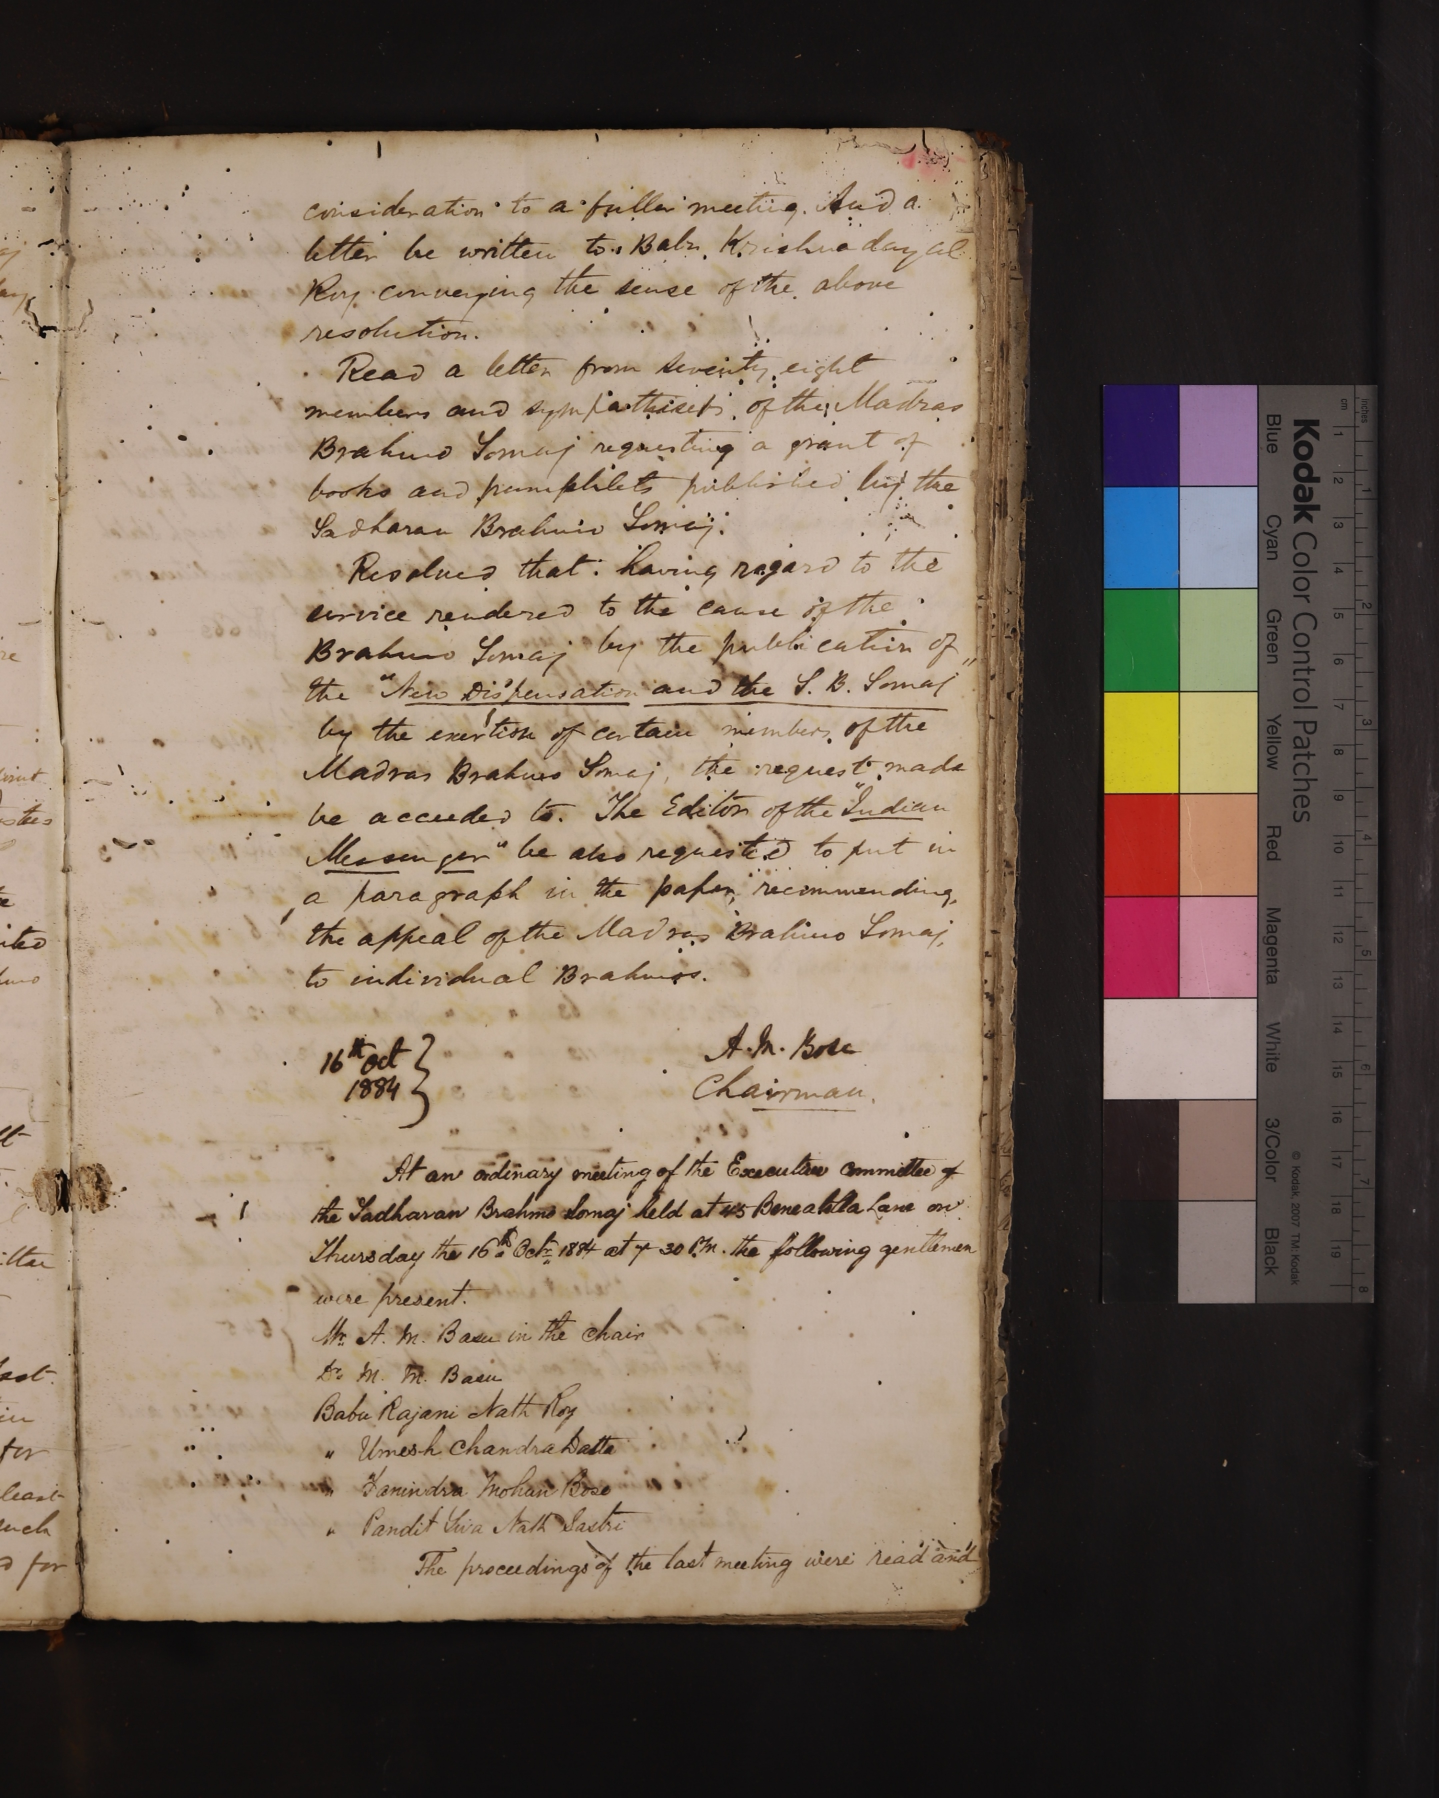 consideration to a fuller meeting. And a
letter be written to Babu Krishna dayal
Roy conveying the sense of the above
resolution.
Read a letter from seventy eight
members and sympathisers of the Madras
Brahmo Somaj requesting a grant of
books and pamphlets published by the
Sadharan Brahmo Somaj.
Resolved that having regard to the
service rendered to the cause of the
Brahmo Somaj by the publication of
the "New Dispensation and the S. B. Somaj"
by the exertion of certain members of the
Madras Brahmo Somaj, the request made
be acceeded to. The Editor of the "Indian
Messenger" be also requested to put in
a paragraph in the paper, recommending
the appeal of the Madras Brahmo Somaj,
to individual Brahmos.
16th Oct
1884
A. M. Bose
Chairman.
At an ordinary meeting of the Executive Committee of
the Sadharan Brahmo Somaj held at 45 Beneatola Lane on
Thursday the 16th Octr 1884 at 7-30 P.M. the following gentlemen
were present.
Mr. A. M. Basu in the chair
Dr M. M. Basu
Babu Rajani Nath Roy
" Umesh Chandra Datta
" Fanindra Mohan Bose
" Pandit Siva Nath Sastri
The proceedings of the last meeting were read and
for
least
such
for
Kodak Color Control Patches
Blue Cyan Green Yellow Red Magenta White 3/Color Black
© Kodak, 2007 TM: Kodak
inches 1 2 3 4 5 6 7 8
cm 1 2 3 4 5 6 7 8 9 10 11 12 13 14 15 16 17 18 19